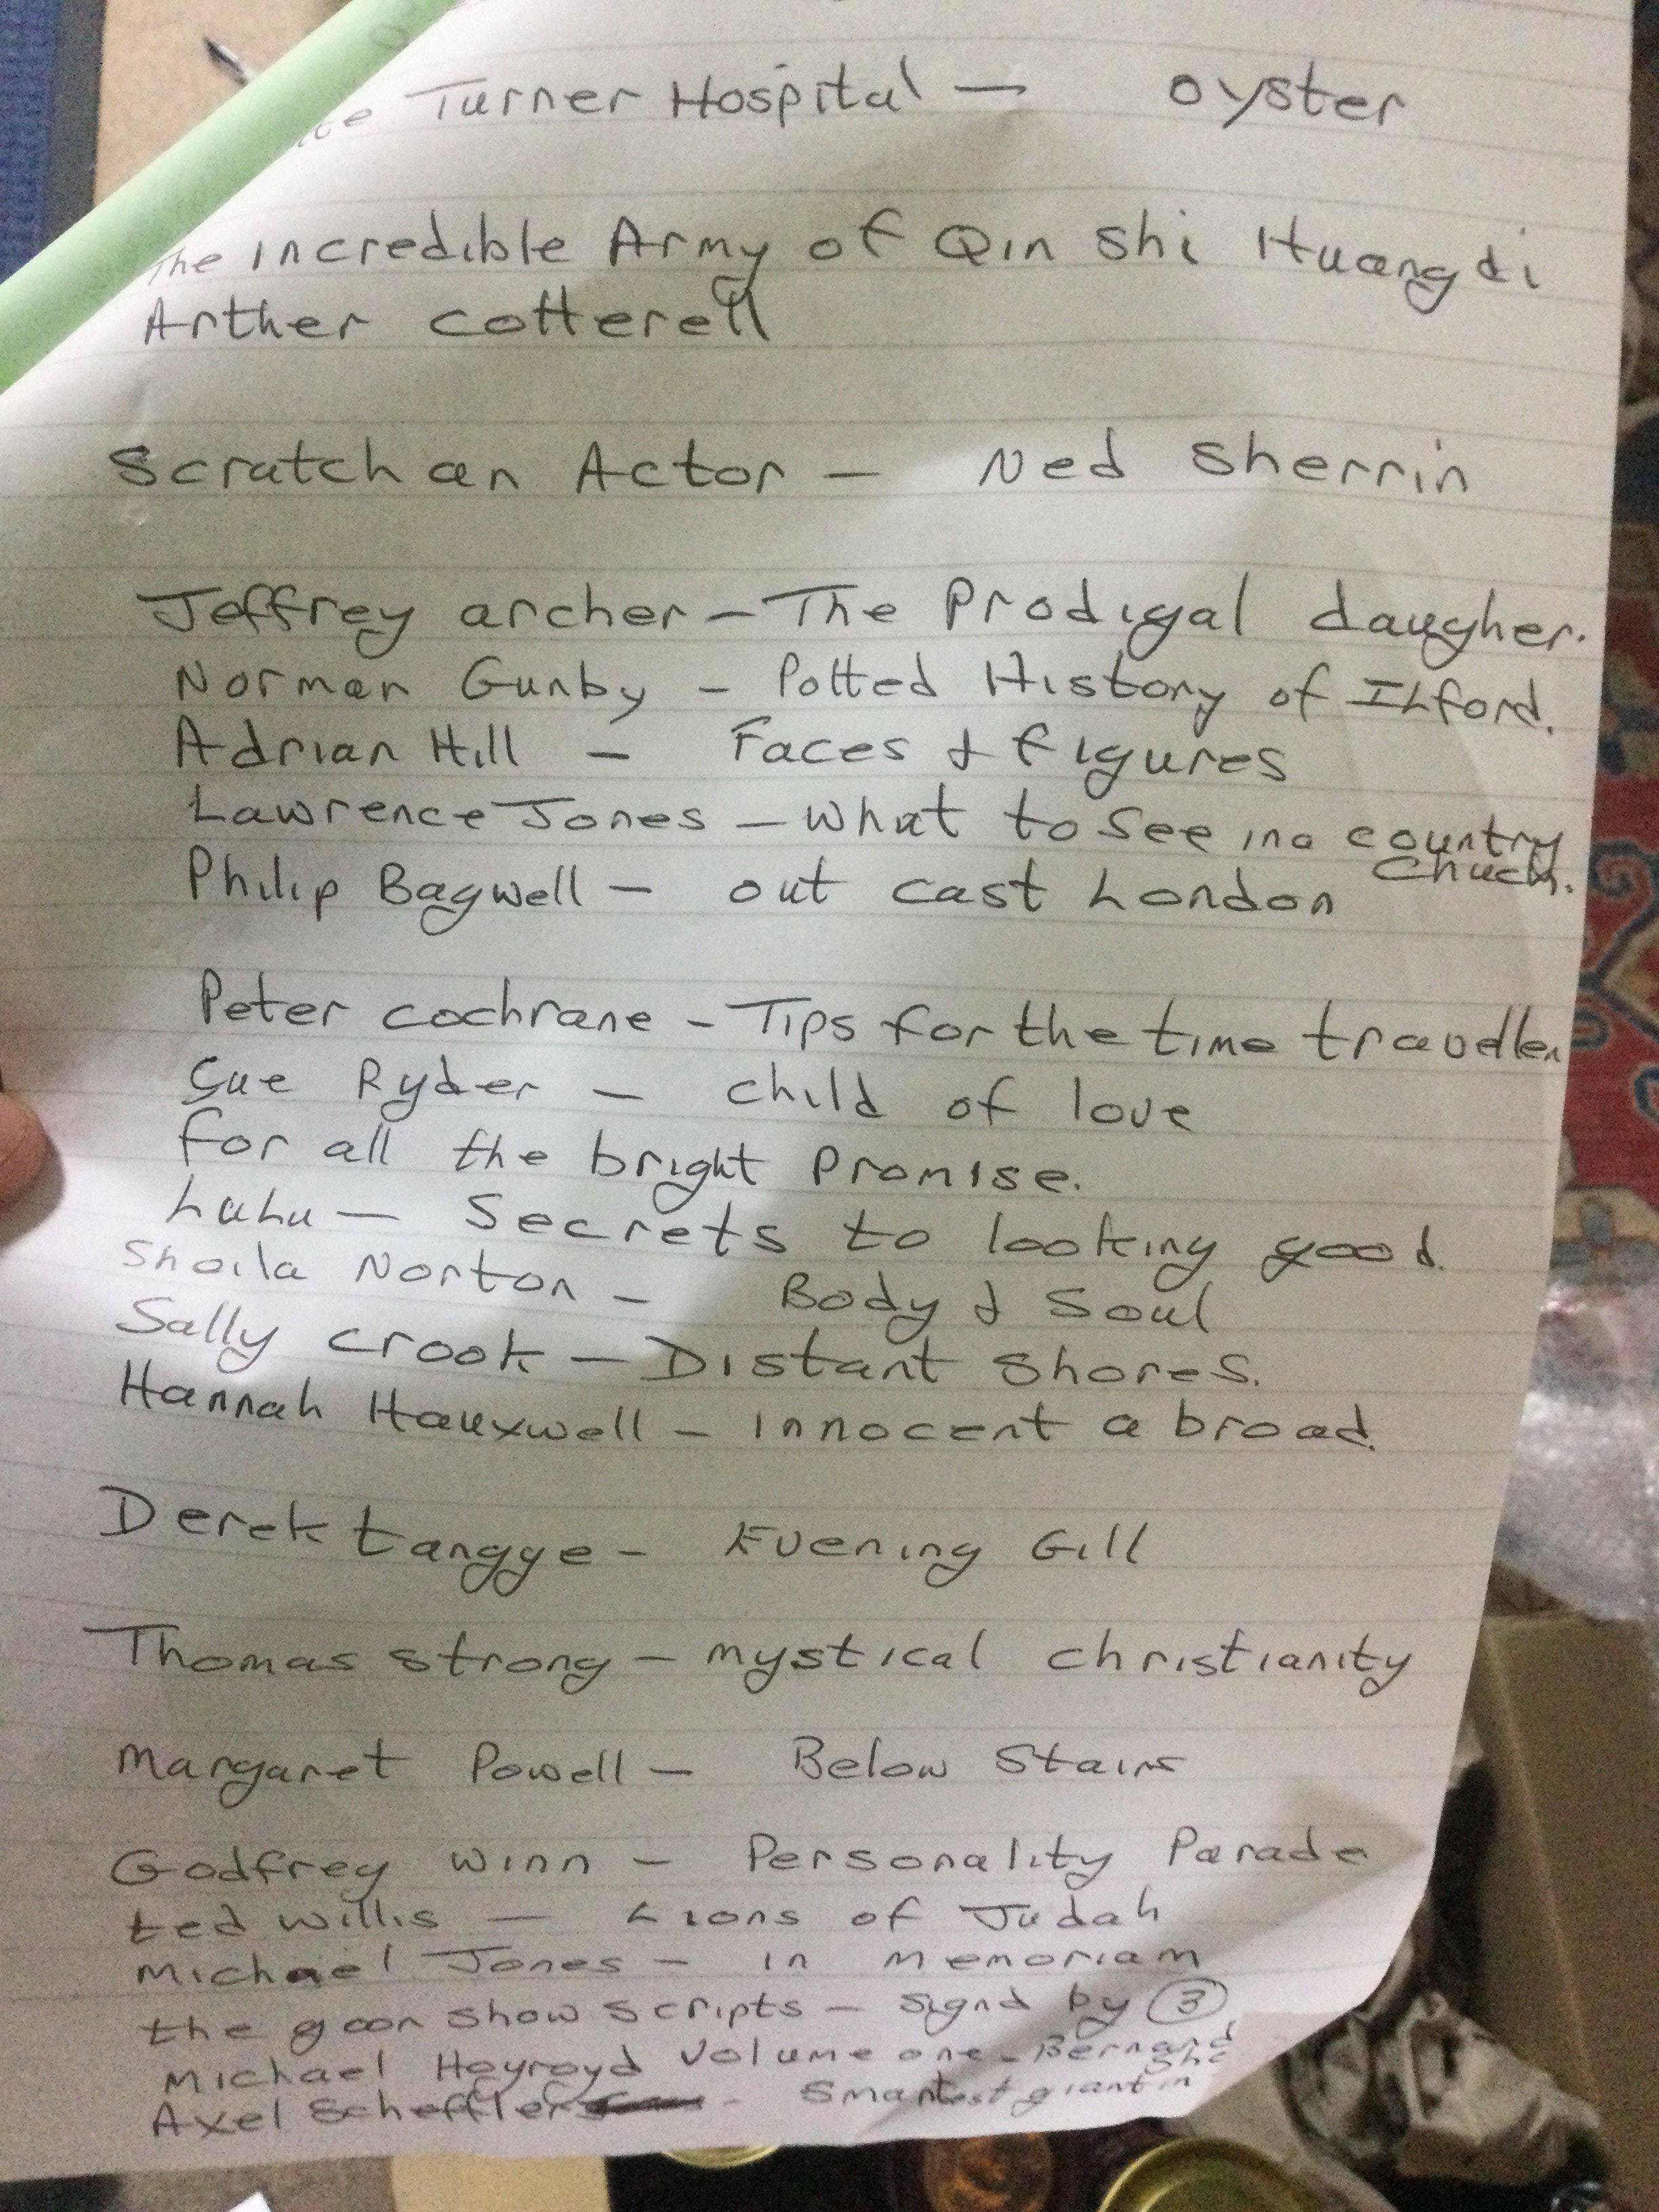 Turner Hospital — oyster
The incredible Army of Qin Shi Huangdi
Arther Cotterell
Scratch an Actor — Ned Sherrin
Jeffrey archer — The Prodigal daugher.
Norman Gunby — Potted History of Ilford.
Adrian Hill — Faces & figures
Lawrence Jones — what to see in a country
Chuch.
Philip Bagwell — out cast London
Peter cochrane — Tips for the time traveller
Sue Ryder — child of love
for all the bright promise.
Lulu — Secrets to looking good.
Sheila Norton — Body & Soul
Sally crook — Distant shores.
Hannah Hauxwell — innocent abroad.
Derek tangye — Evening Gill
Thomas strong — mystical christianity
Margaret Powell — Below Stairs
Godfrey winn — Personality Parade
ted willis — Lions of Judah
Michael Jones — in memoriam
the goon show scripts — signd by 3
Michael Hoyroyd Volume one — Bernard
Sha
Axel Scheffler — Smartest giant in